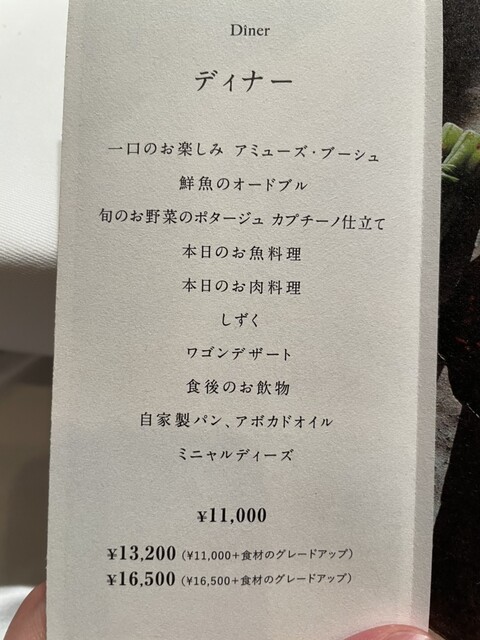 Dîner
ディナー
一口のお楽しみ アミューズ・ブーシュ
鮮魚のオードブル
旬のお野菜のポタージュ カプチーノ仕立て
本日のお魚料理
本日のお肉料理
しずく
ワゴンデザート
食後のお飲物
自家製パン、アボカドオイル
ミニャルディーズ
¥11,000
¥13,200 (¥11,000+食材のグレードアップ)
¥16,500 (¥16,500+食材のグレードアップ)